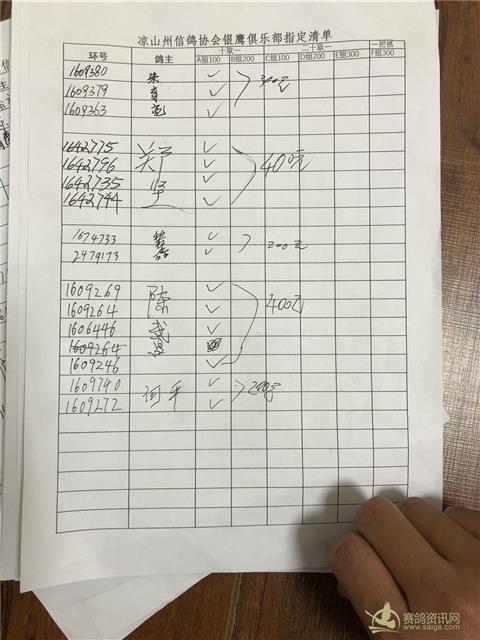 凉山州信鸽协会银鹰俱乐部指定清单
环号 鸽主 十取一 二十取一 一把抓
A组100 B组200 C组100 D组200 E组300 F组300
1609380 朱 ✓
1609379 育 ✓ 300元
1609363 ✓
1642775 郑 ✓
1642796 ✓ 400元
1642735 坚 ✓
1642744 ✓
1674733 ✓ 200元
2479173 ✓
1609269 陈 ✓
1609264 ✓ 400元
1606446 武 ✓
1609264
1609246 ✓
1609740 何平 ✓ 200元
1609272 ✓
赛鸽资讯网
www.saige.com